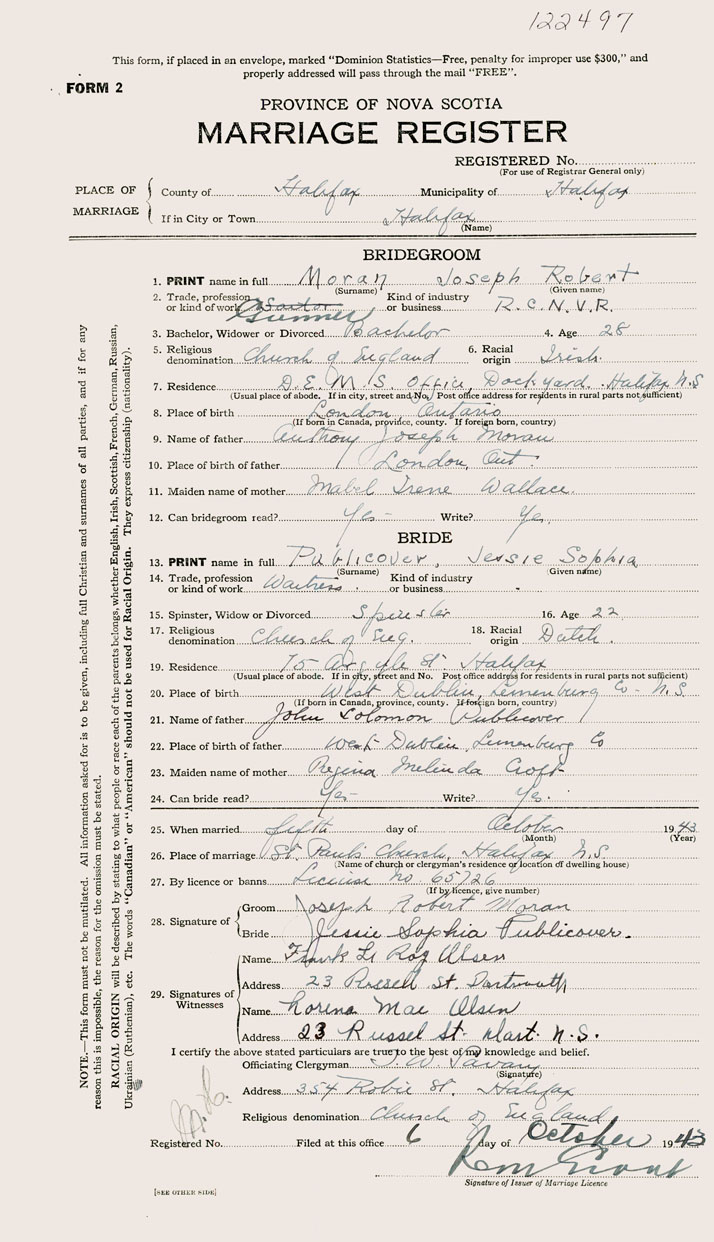 122497
This form, if placed in an envelope, marked "Dominion Statistics—Free, penalty for improper use $300," and
properly addressed will pass through the mail "FREE".
FORM 2
PROVINCE OF NOVA SCOTIA
MARRIAGE REGISTER
REGISTERED No.
(For use of Registrar General only)
PLACE OF MARRIAGE
County of Halifax Municipality of Halifax
If in City or Town Halifax
(Name)
BRIDEGROOM
1. PRINT name in full Moran Joseph Robert
(Surname) (Given name)
2. Trade, profession or kind of work Gunner Kind of industry or business R.C.N.V.R.
3. Bachelor, Widower or Divorced Bachelor 4. Age 28
5. Religious denomination Church of England 6. Racial origin Irish
7. Residence D.E.M.S. Office, Dockyard. Halifax N.S
(Usual place of abode. If in city, street and No. Post office address for residents in rural parts not sufficient)
8. Place of birth London, Ontario
(If born in Canada, province, county. If foreign born, country)
9. Name of father Anthony Joseph Moran
10. Place of birth of father London, Ont.
11. Maiden name of mother Mabel Irene Wallace.
12. Can bridegroom read? Yes- Write? Yes.
BRIDE
13. PRINT name in full Publicover, Jessie Sophia
(Surname) (Given name)
14. Trade, profession or kind of work Waitress. Kind of industry or business
15. Spinster, Widow or Divorced Spinster 16. Age 22
17. Religious denomination Church of Eng. 18. Racial origin Dutch.
19. Residence 75 Argyle St. Halifax
(Usual place of abode. If in city, street and No. Post office address for residents in rural parts not sufficient)
20. Place of birth West Dublin, Lunenburg Co- N.S.
(If born in Canada, province, county. If foreign born, country)
21. Name of father John Solomon Publicover
22. Place of birth of father West Dublin, Lunenburg Co
23. Maiden name of mother Regina Melinda Croft
24. Can bride read? Yes- Write? Yes.
25. When married fifth day of October 1943
(Month) (Year)
26. Place of marriage St. Paul's Church, Halifax N.S
(Name of church or clergyman's residence or location of dwelling house)
27. By licence or banns License No. 65726
(If by licence, give number)
28. Signature of
Groom Joseph Robert Moran
Bride Jessie Sophia Publicover.
29. Signatures of Witnesses
Name Frank Le Roy Olsen
Address 23 Russell St. Dartmouth
Name Lorena Mae Olsen
Address 23 Russel St. Dart. N.S.
I certify the above stated particulars are true to the best of my knowledge and belief.
Officiating Clergyman
(Signature)
Address 354 Robie St. Halifax
Religious denomination Church of England
Registered No. Filed at this office 6 day of October 1943
Signature of Issuer of Marriage Licence
[SEE OTHER SIDE]
NOTE.—This form must not be mutilated. All information asked for is to be given, including full Christian and surnames of all parties, and if for any
reason this is impossible, the reason for the omission must be stated.
RACIAL ORIGIN will be described by stating to what people or race each of the parents belongs, whether English, Irish, Scottish, French, German, Russian,
Ukrainian (Ruthenian), etc. The words "Canadian" or "American" should not be used for Racial Origin. They express citizenship (nationality).